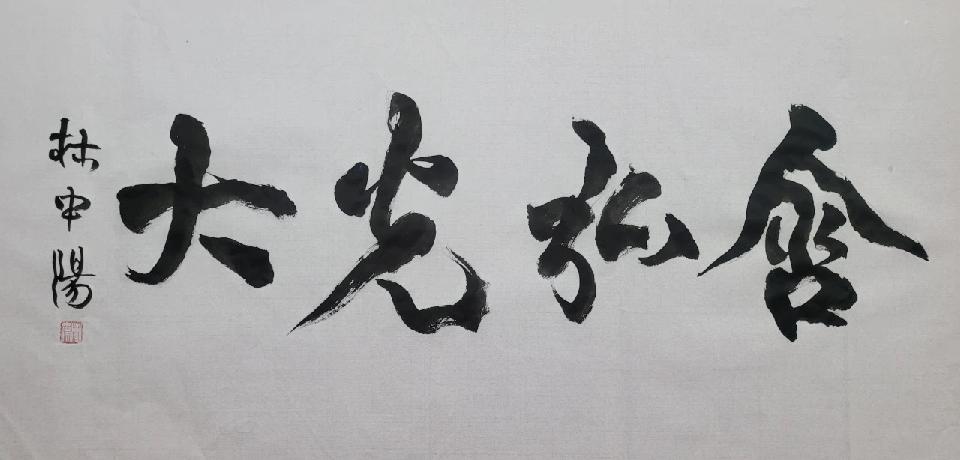 含弘光大
林中陽